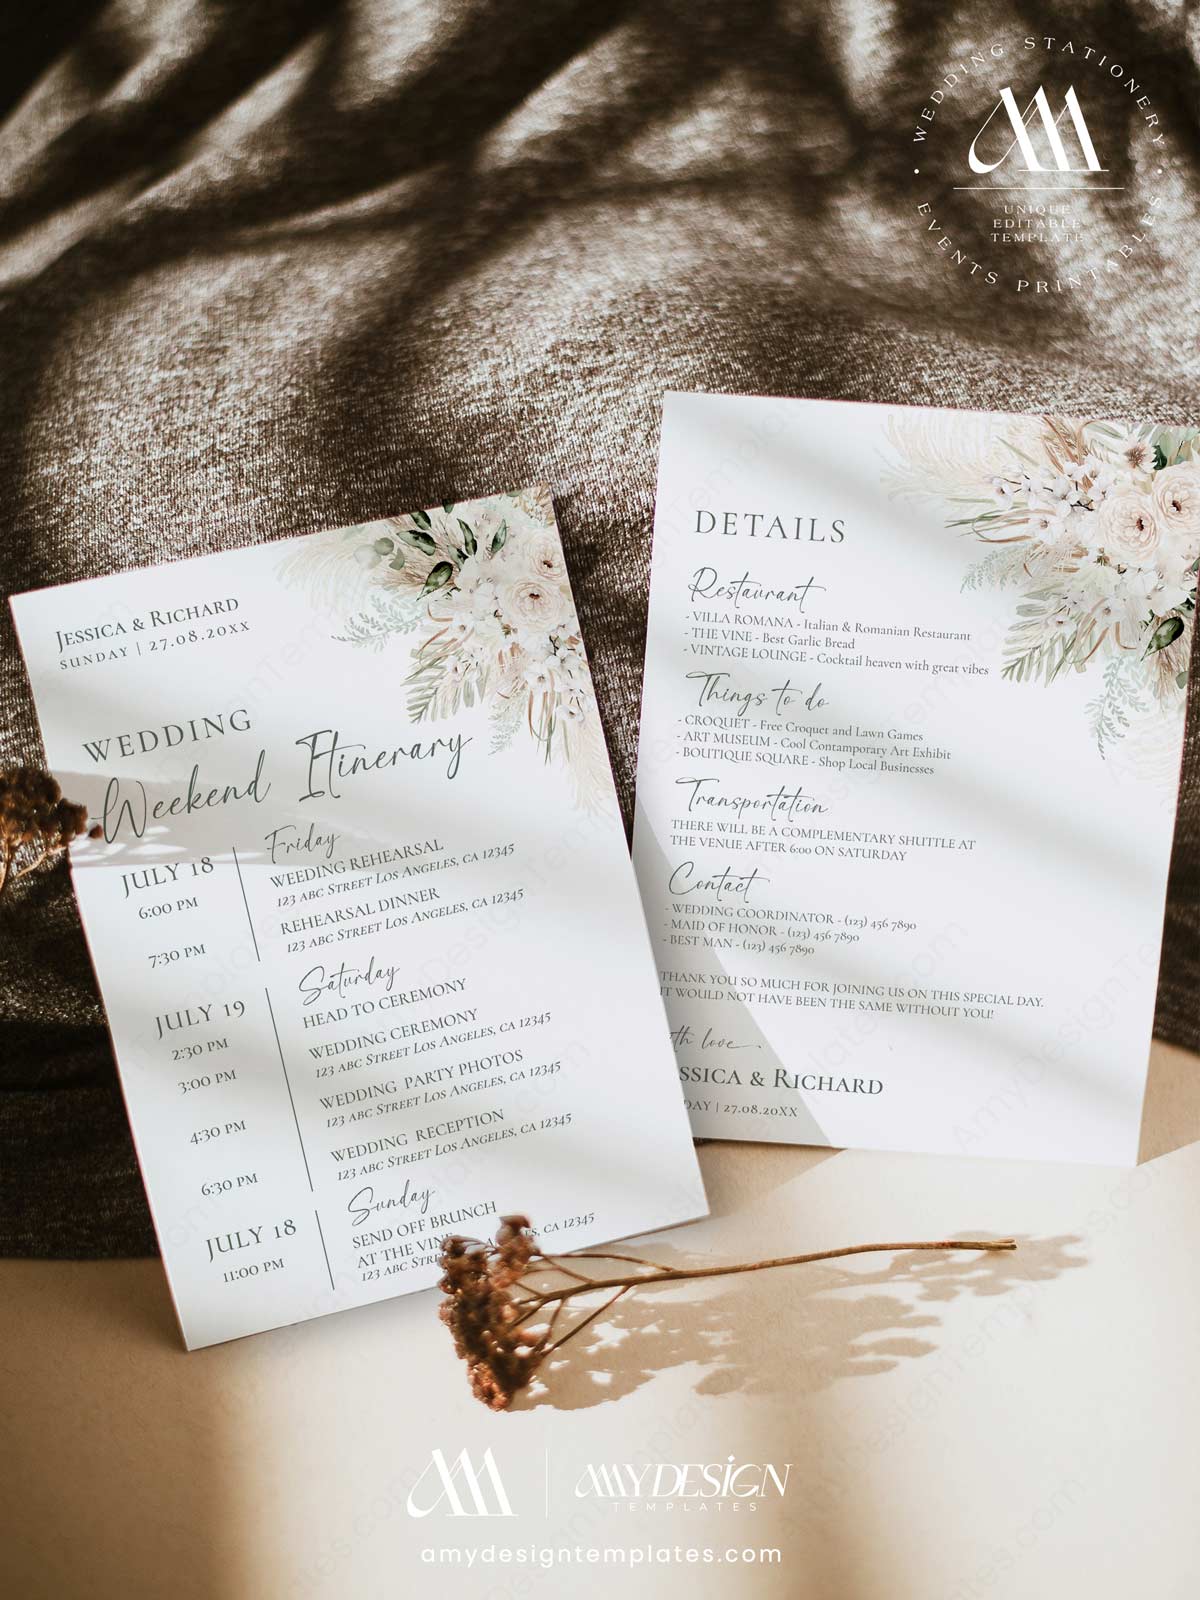 WEDDING STATIONERY
UNIQUE
EDITABLE
TEMPLATE
EVENTS PRINTABLES
JESSICA & RICHARD
SUNDAY | 27.08.20XX
WEDDING
Weekend Itinerary
Friday
JULY 18
WEDDING REHEARSAL
6:00 PM
123 ABC STREET LOS ANGELES, CA 12345
REHEARSAL DINNER
7:30 PM
123 ABC STREET LOS ANGELES, CA 12345
Saturday
JULY 19
HEAD TO CEREMONY
2:30 PM
WEDDING CEREMONY
3:00 PM
123 ABC STREET LOS ANGELES, CA 12345
WEDDING PARTY PHOTOS
4:30 PM
123 ABC STREET LOS ANGELES, CA 12345
WEDDING RECEPTION
6:30 PM
123 ABC STREET LOS ANGELES, CA 12345
Sunday
JULY 18
SEND OFF BRUNCH
11:00 PM
AT THE VINE
123 ABC STREET CA 12345
DETAILS
Restaurant
- VILLA ROMANA - Italian & Romanian Restaurant
- THE VINE - Best Garlic Bread
- VINTAGE LOUNGE - Cocktail heaven with great vibes
Things to do
- CROQUET - Free Croquet and Lawn Games
- ART MUSEUM - Cool Contamporary Art Exhibit
- BOUTIQUE SQUARE - Shop Local Businesses
Transportation
THERE WILL BE A COMPLEMENTARY SHUTTLE AT
THE VENUE AFTER 6:00 ON SATURDAY
Contact
- WEDDING COORDINATOR - (123) 456 7890
- MAID OF HONOR - (123) 456 7890
- BEST MAN - (123) 456 7890
THANK YOU SO MUCH FOR JOINING US ON THIS SPECIAL DAY.
IT WOULD NOT HAVE BEEN THE SAME WITHOUT YOU!
th love
SSICA & RICHARD
DAY | 27.08.20XX
AMYDESIGN
TEMPLATES
amydesigntemplates.com